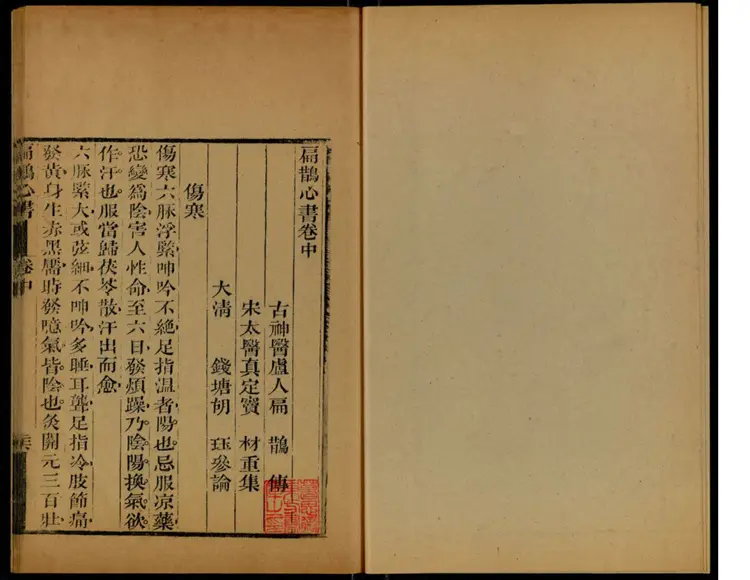 扁鵲心書卷中
古神醫盧人扁　鵲　傳
宋太醫真定竇　材重集
大清　錢塘胡　珏參論
傷寒
傷寒六脉浮緊呻吟不絶足指温者陽也忌服凉藥
恐變爲陰害人性命至六日發煩躁乃陰陽換氣欲
作汗也服當歸茯苓散汗出而愈
六脉緊大或弦細不呻吟多睡耳聾足指冷肢節痛
發黃身生赤黑靨時發噫氣皆陰也灸關元三百壯
扁鵲心書　卷中